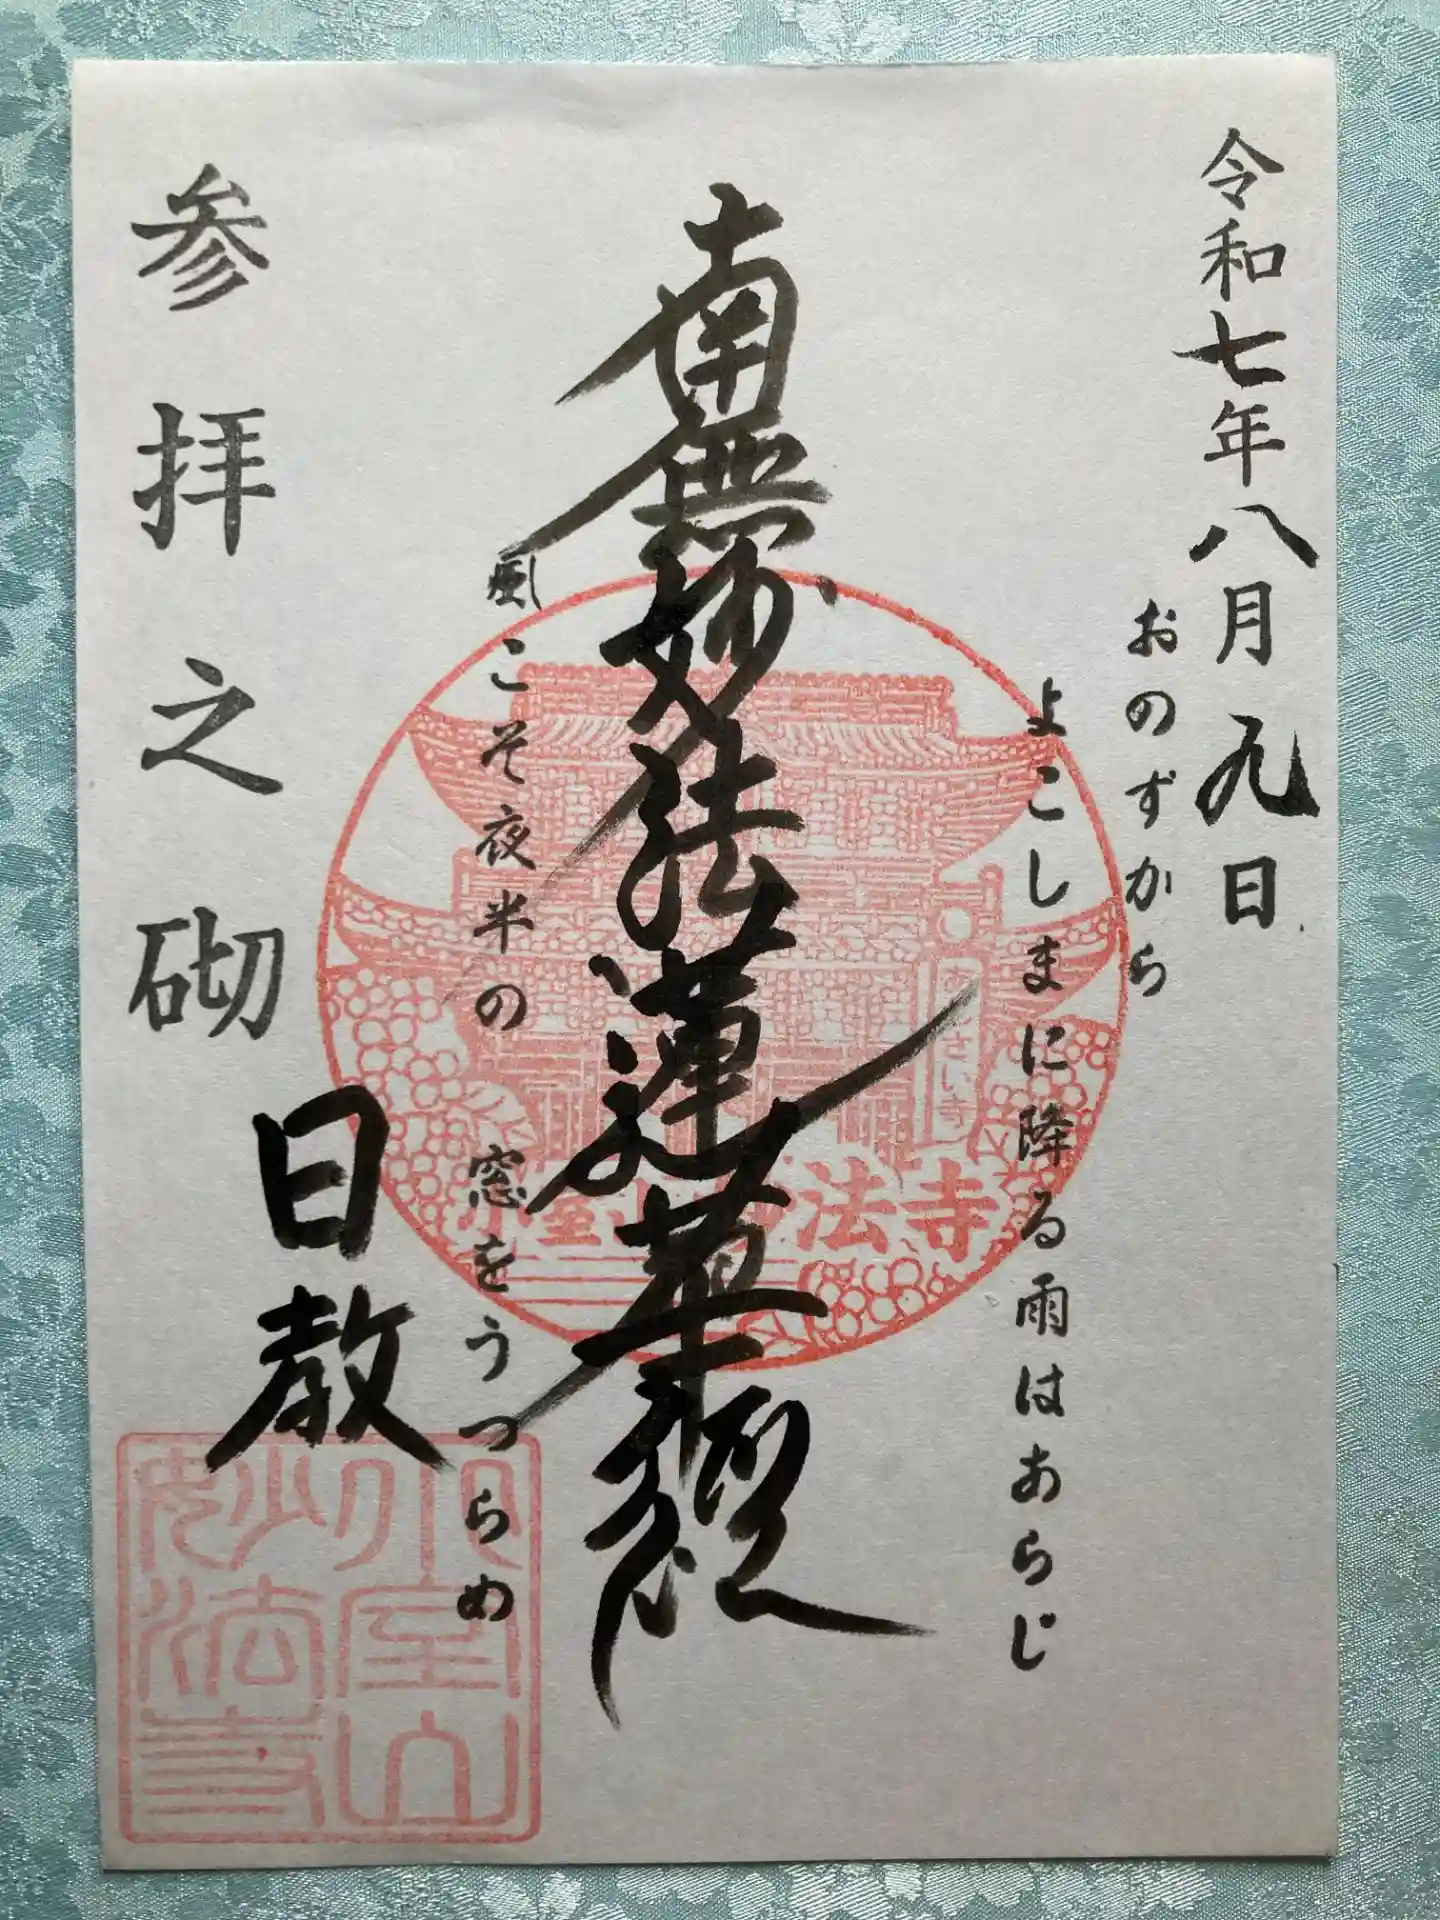 令和七年八月九日
おのずから
よこしまに降る雨はあらじ
南無妙法蓮華経
風こそ夜半の窓をうつらめ
参拝之砌
日教
あじさい寺
小室山妙法寺
小室山妙法寺